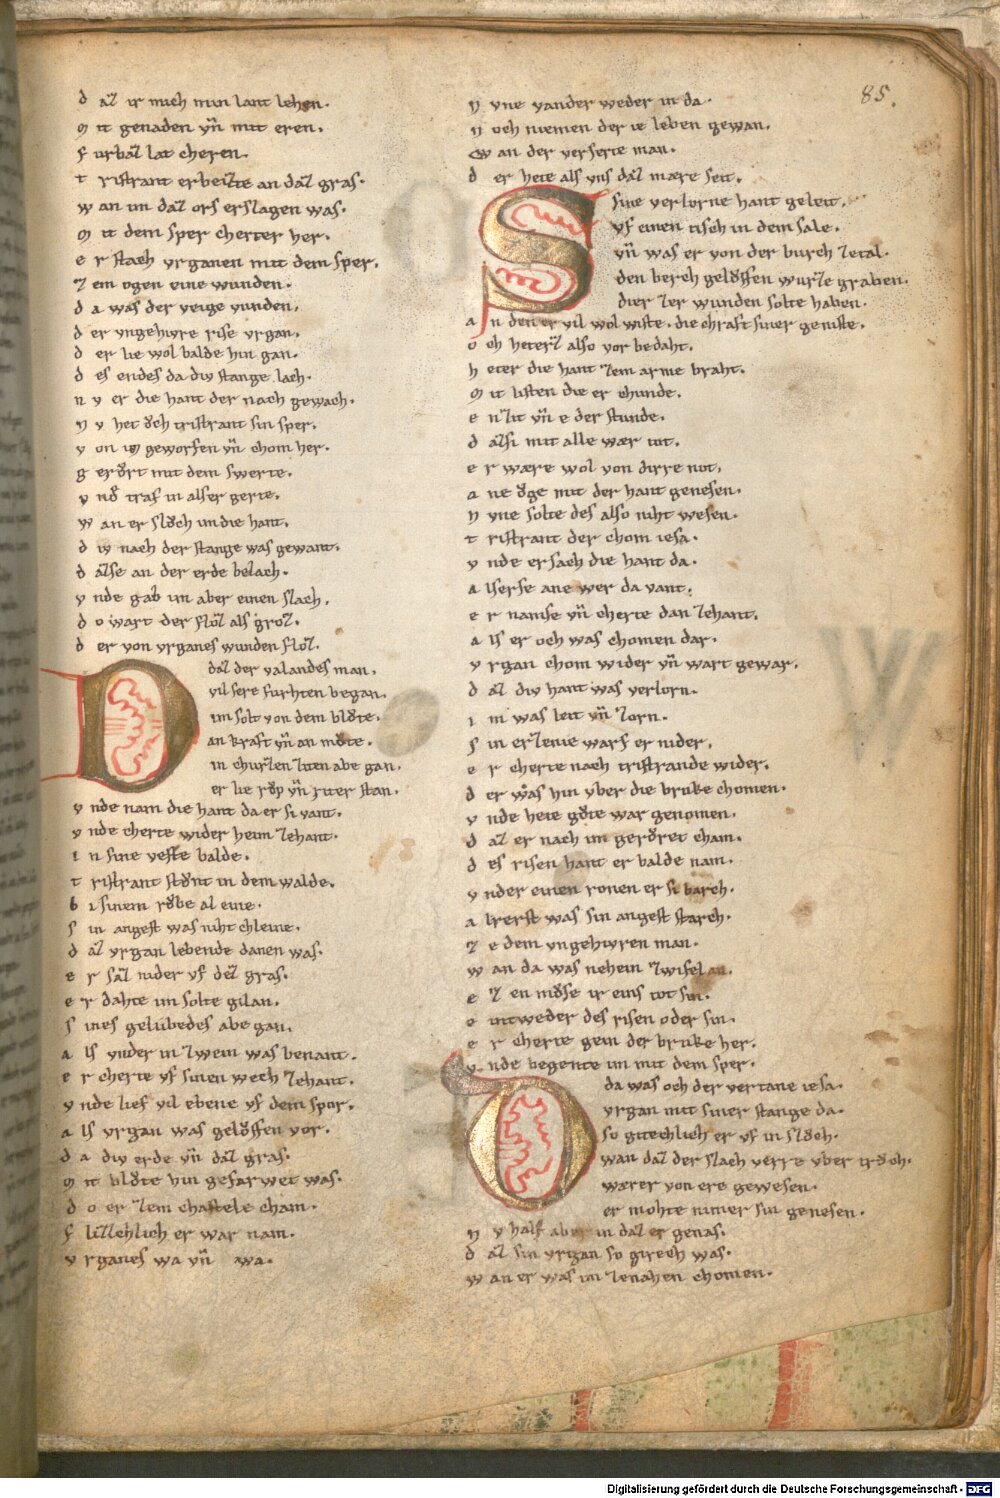 d aſ ir mich min lant lehen.
M it genaden vn̄ mit eren.
f urbaſ lat cheren.
t riſtrant erbeiſte an daſ gras.
w an im daſ ors erſlagen was.
M it dem ſper cherter her.
e r ſtach vrganen mit dem ſper.
z em ogen eine wunden.
d a was der veige vunden.
d er vngehivre riſe vrgan.
d er lie wol balde hin gan.
d es endes da div ſtange lach.
n v er die hant der nach gewach.
N v het ŏch triſtrant ſin ſper.
v on im geworfen vn̄ chom her.
g erŏrt mit dem ſwerte.
v nd traf in alſer gerte.
w an er ſlŏch im die hant.
d iv nach der ſtange was gewant.
d aſſe an der erde belach.
v nde gab im aber einen ſlach.
d o wart der flŏz als groz.
d er von vrganes wunden floz.
D daz der valandes man.
vil ſere furhten began.
im ſolt von dem blŏte.
an kraft vn̄ an mŏte.
in churzlen ziten abe gan.
er lie rŏp vn̄ riter ſtan.
v nde nam die hant da er ſi vant.
v nde cherte wider heim zehant.
i n ſine veſte balde.
t riſtrant ſtŏnt in dem walde.
b i ſinem rŏbe al eine.
ſ in angeſt was niht chleine.
d az vrgan lebende danen was.
e r ſaz nider vf dez gras.
e r dahte im ſolte gilan.
S ines gelubedes abe gan.
a ls vnder in zwein was benant.
e r cherte vf ſinen wech zehant.
v nde lief vil ebene vf dem ſpor.
a ls vrgan was gelŏffen vor.
d a div erde vn̄ daz gras.
M it blŏte hin gefarwet was.
d o er zem chaſtele cham.
f lizchlich er war nam.
v rganes wa vn̄ wa.
85.
N vne vander weder in da.
N och niemen der ie leben gewan.
W an der verſerte man.
d er hete als vns daz mære ſeit.
S ſine verlorne hant geleit.
vf einen tiſch in dem ſale.
vn̄ was er von der burch zetal.
den berch gelŏffen wurze graben.
dier zer wunden ſolte haben.
a n den er vil wol wiſte. die chraft ſiner geniſte.
o ch heterz alſo vor bedaht.
h eter die hant zem arme braht.
M it liſten die er chunde.
e nzit vn̄ e der ſtunde.
d azſi mit alle wær tot.
e r wære wol von dirre not.
a ne ŏge mit der hant geneſen.
N vne ſolte des alſo niht weſen.
t riſtrant der chom ieſa.
v nde erſach die hant da.
a lſerſe ane wer da vant.
e r namſe vn̄ cherte dan zehant.
a ls er och was chomen dar.
v rgan chom wider vn̄ wart gewar.
d az div hant was verlorn.
i m was leit vn̄ zorn.
ſ in erzenie warf er nider.
e r cherte nach triſtrande wider.
d er was hin vber die bruke chomen.
v nde hete gŏte war genomen.
d az er nach im gerŏret cham.
d es riſen hant er balde nam.
v nder einen ronen er ſi barch.
a lrerſt was ſin angeſt ſtarch.
z e dem vngehivren man.
w an da was nehein zwifel an.
e z en mŏſe ir eins tot ſin.
e intweder des riſen oder ſin.
e r cherte gein der bruke her.
v nde begente im mit dem ſper.
D da was och der vertane ieſa.
vrgan mit ſiner ſtange da.
ſo gitechlich er vf in ſlŏch.
wan daz der ſlach verre vber trŏch.
wærer von ere geweſen.
er mohte nimer ſin geneſen.
N v half aber in daz er genas.
d az ſin vrgan ſo girech was.
w an er was im zenahen chomen.
Digitalisierung gefördert durch die Deutsche Forschungsgemeinschaft - DFG